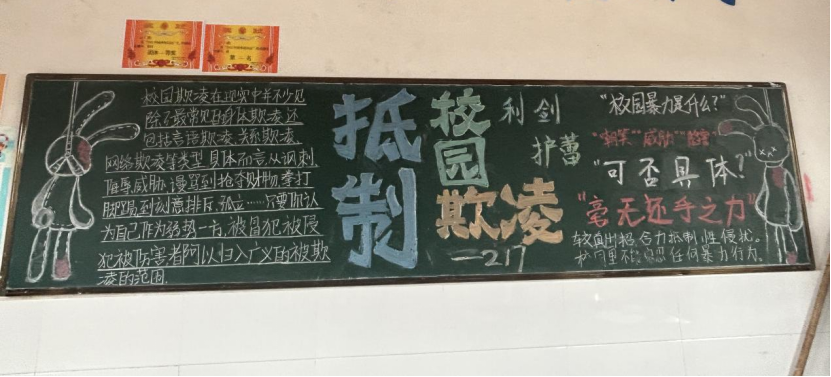 奖状
奖状
第二名
校园欺凌在现实中并不少见
除了最常见的身体欺凌,还
包括言语欺凌、关系欺凌、
网络欺凌等类型。具体而言,从讽刺、
侮辱、威胁、谩骂到抢夺财物、拳打
脚踢到刻意排斥、孤立……只要你认
为自己作为弱势一方,被冒犯被侵
犯被伤害者阿以归入广义的被欺
凌的范围
抵制
校园
欺凌
—217
利剑
护蕾
"校园暴力是什么?"
"嘲笑""威胁"
"可否具体?"
"毫无还手之力"
合力抵制性侵扰。
任何暴力行为。